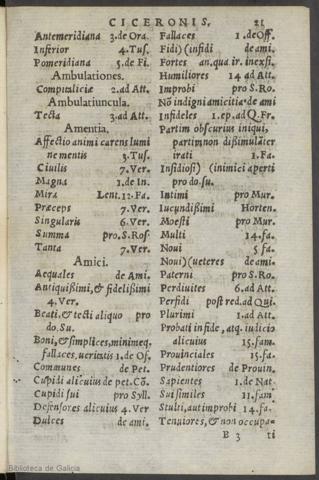 CICERONIS. 21
Antemeridiana 3. de Ora.
Inferior 4. Tus.
Pomeridiana 5. de Fi.
Ambulationes.
Compitaliciæ 2. ad Att.
Ambulatiuncula.
Tecta 3. ad Att.
Amentia.
Affectio animi carens lumi
ne mentis 3. Tus.
Ciuilis 7. Ver.
Magna 1. de In.
Mira Lent. 12. Fa.
Præceps 7. Ver.
Singularis 6. Ver.
Summa pro. S. Ros.
Tanta 7. Ver.
Amici.
Aequales de Ami.
Antiquißimi, & fidelißimi
4. Ver.
Beati, & tecti aliquo pro
do. Su.
Boni, & simplices, minimeq;
fallaces, ueritatis 1. de Of.
Communes de Pet.
Cupidi alicuius de pet. Cō.
Cupidi sui pro Syll.
Defensores alicuius 4. Ver
Dulces de ami.
Fallaces 1. de Off.
Fidi) (infidi de ami.
Fortes an. qua ir. inexsi.
Humiliores 14 ad Att.
Improbi pro S. Ro.
Nō indigni amicitia de ami
Infideles 1. ep. ad Q. Fr.
Partim obscurius iniqui,
partim non dißimulāter
irati 1. Fa.
Insidiosi) (inimici aperti
pro do. su.
Intimi pro Mur.
Iucundißimi Horten.
Moesti pro Mur.
Multi 14. fa.
Noui 5 fa.
Noui) (ueteres de ami.
Paterni pro S. Ro.
Perdiuites 6. ad Att.
Perfidi post red. ad Qui.
Plurimi 1. ad Att.
Probati in fide, atq; iudicio
alicuius 15. fam.
Prouinciales 15. fa.
Prudentiores de Prouin.
Sapientes 1. de Nat.
Sui similes 11. fam.
Stulti, aut improbi 14. fa.
Tenuiores, & non occupa-
B 3 ti
Biblioteca de Galicia